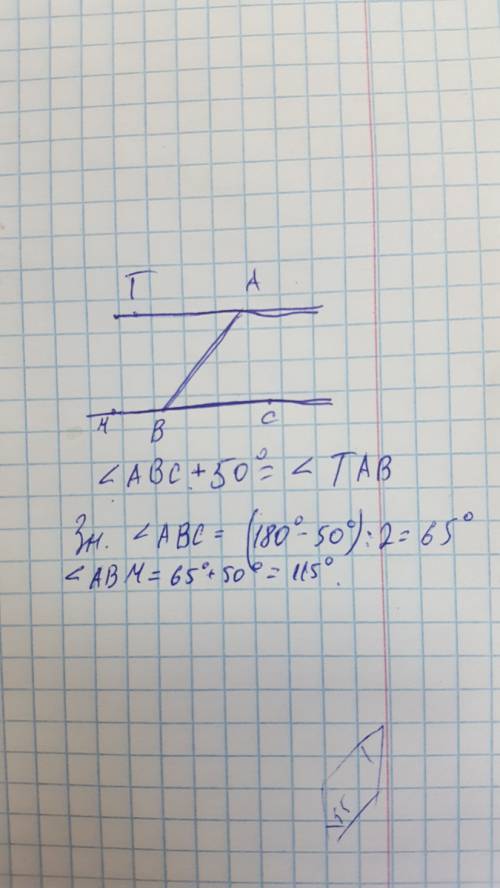 T A
M B C
∠ABC + 50° = ∠ TAB
Зн. ∠ABC = (180° - 50°) : 2 = 65°
∠ABM = 65° + 50° = 115°.